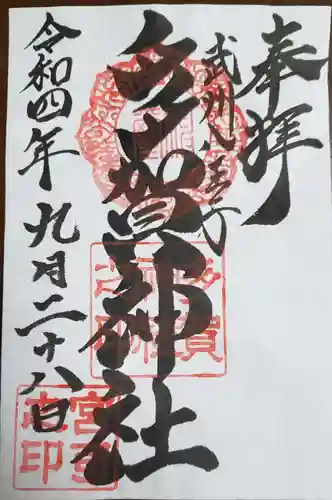 奉拝
武州八王子
多賀神社
令和四年九月二十八日
多賀神社之印
宮司之印